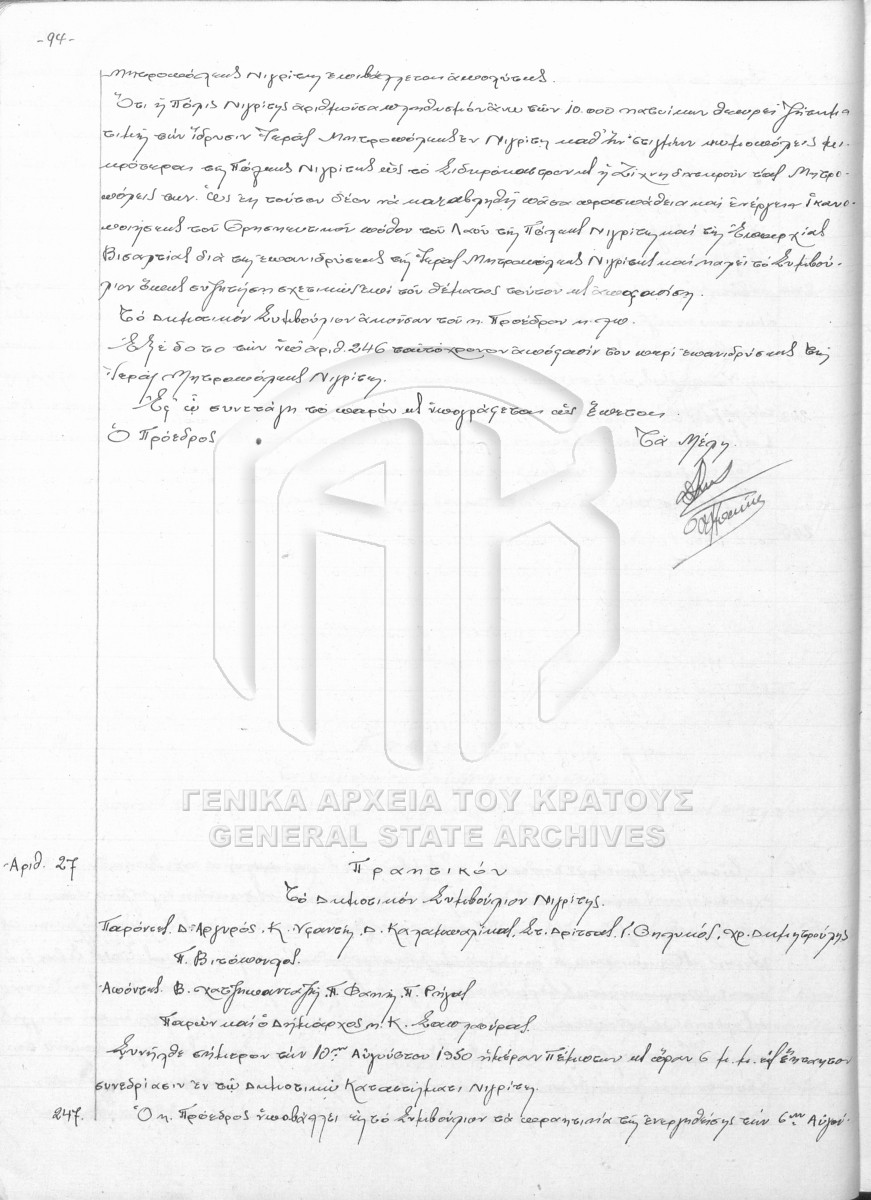 -94-
Μητροπόλεως Νιγρίτης επιβάλλεται απολύτως.
Ότι η Πόλις Νιγρίτης αριθμούσα πληθυσμόν άνω των 10.000 κατοίκων θεωρεί ζήτημα
τιμής την ίδρυσιν Ιεράς Μητροπόλεως εν Νιγρίτη καθ' ην στιγμήν κωμοπόλεις μι-
κρότεραι της Πόλεως Νιγρίτης ως το Σιδηρόκαστρον κ η Ζίχνη διατηρούν τας Μητρο-
πόλεις των. Ως εκ τούτου δέον να καταβληθή πάσα προσπάθεια και ενέργεια ικανο-
ποιήσεως του Θρησκευτικού πόθου του Λαού της Πόλεως Νιγρίτης και της Επαρχίας
Βισαλτίας διά της επανιδρύσεως της Ιεράς Μητροπόλεως Νιγρίτης και καλεί το Συμβού-
λιον όπως συζητήση σχετικώς επί του θέματος τούτου κ αποφασίση.
Το Δημοτικόν Συμβούλιον ακούσαν του κ. Προέδρου κ.λπ.
Εξέδοτο την υπ' αριθ. 246 ταυτόχρονον απόφασίν του περί επανιδρύσεως της
Ιεράς Μητροπόλεως Νιγρίτης.
Εφ' ω συνετάγη το παρόν κ υπογράφεται ως έπεται.
Ο Πρόεδρος Τα Μέλη
ΓΕΝΙΚΑ ΑΡΧΕΙΑ ΤΟΥ ΚΡΑΤΟΥΣ
GENERAL STATE ARCHIVES
Αριθ. 27 Πρακτικόν
Το Δημοτικόν Συμβούλιον Νιγρίτης.
Παρόντες. Δ. Αργυρός, Κ. Υφαντής, Δ. Καλαμπαλίκας, Στ. Δρίτσας, Γ. Θηλυκός, Χρ. Δημητρούλης
Π. Βιτόπουλος.
Απόντες. Β. Χατζηπανταζής, Π. Φαπής, Π. Ρήγας
Παρών και ο Δήμαρχος κ. Κ. Σαπλαούρας.
Συνήλθε σήμερον την 10ην Αυγούστου 1950 ημέραν Πέμπτην κ ώραν 6 μ.μ. εις έκτακτον
συνεδρίασιν εν τω Δημοτικώ Καταστήματι Νιγρίτης.
247. Ο κ. Πρόεδρος υποβάλλει εις το Συμβούλιον τα πρακτικά της ενεργηθείσης την 6ην Αυγού-